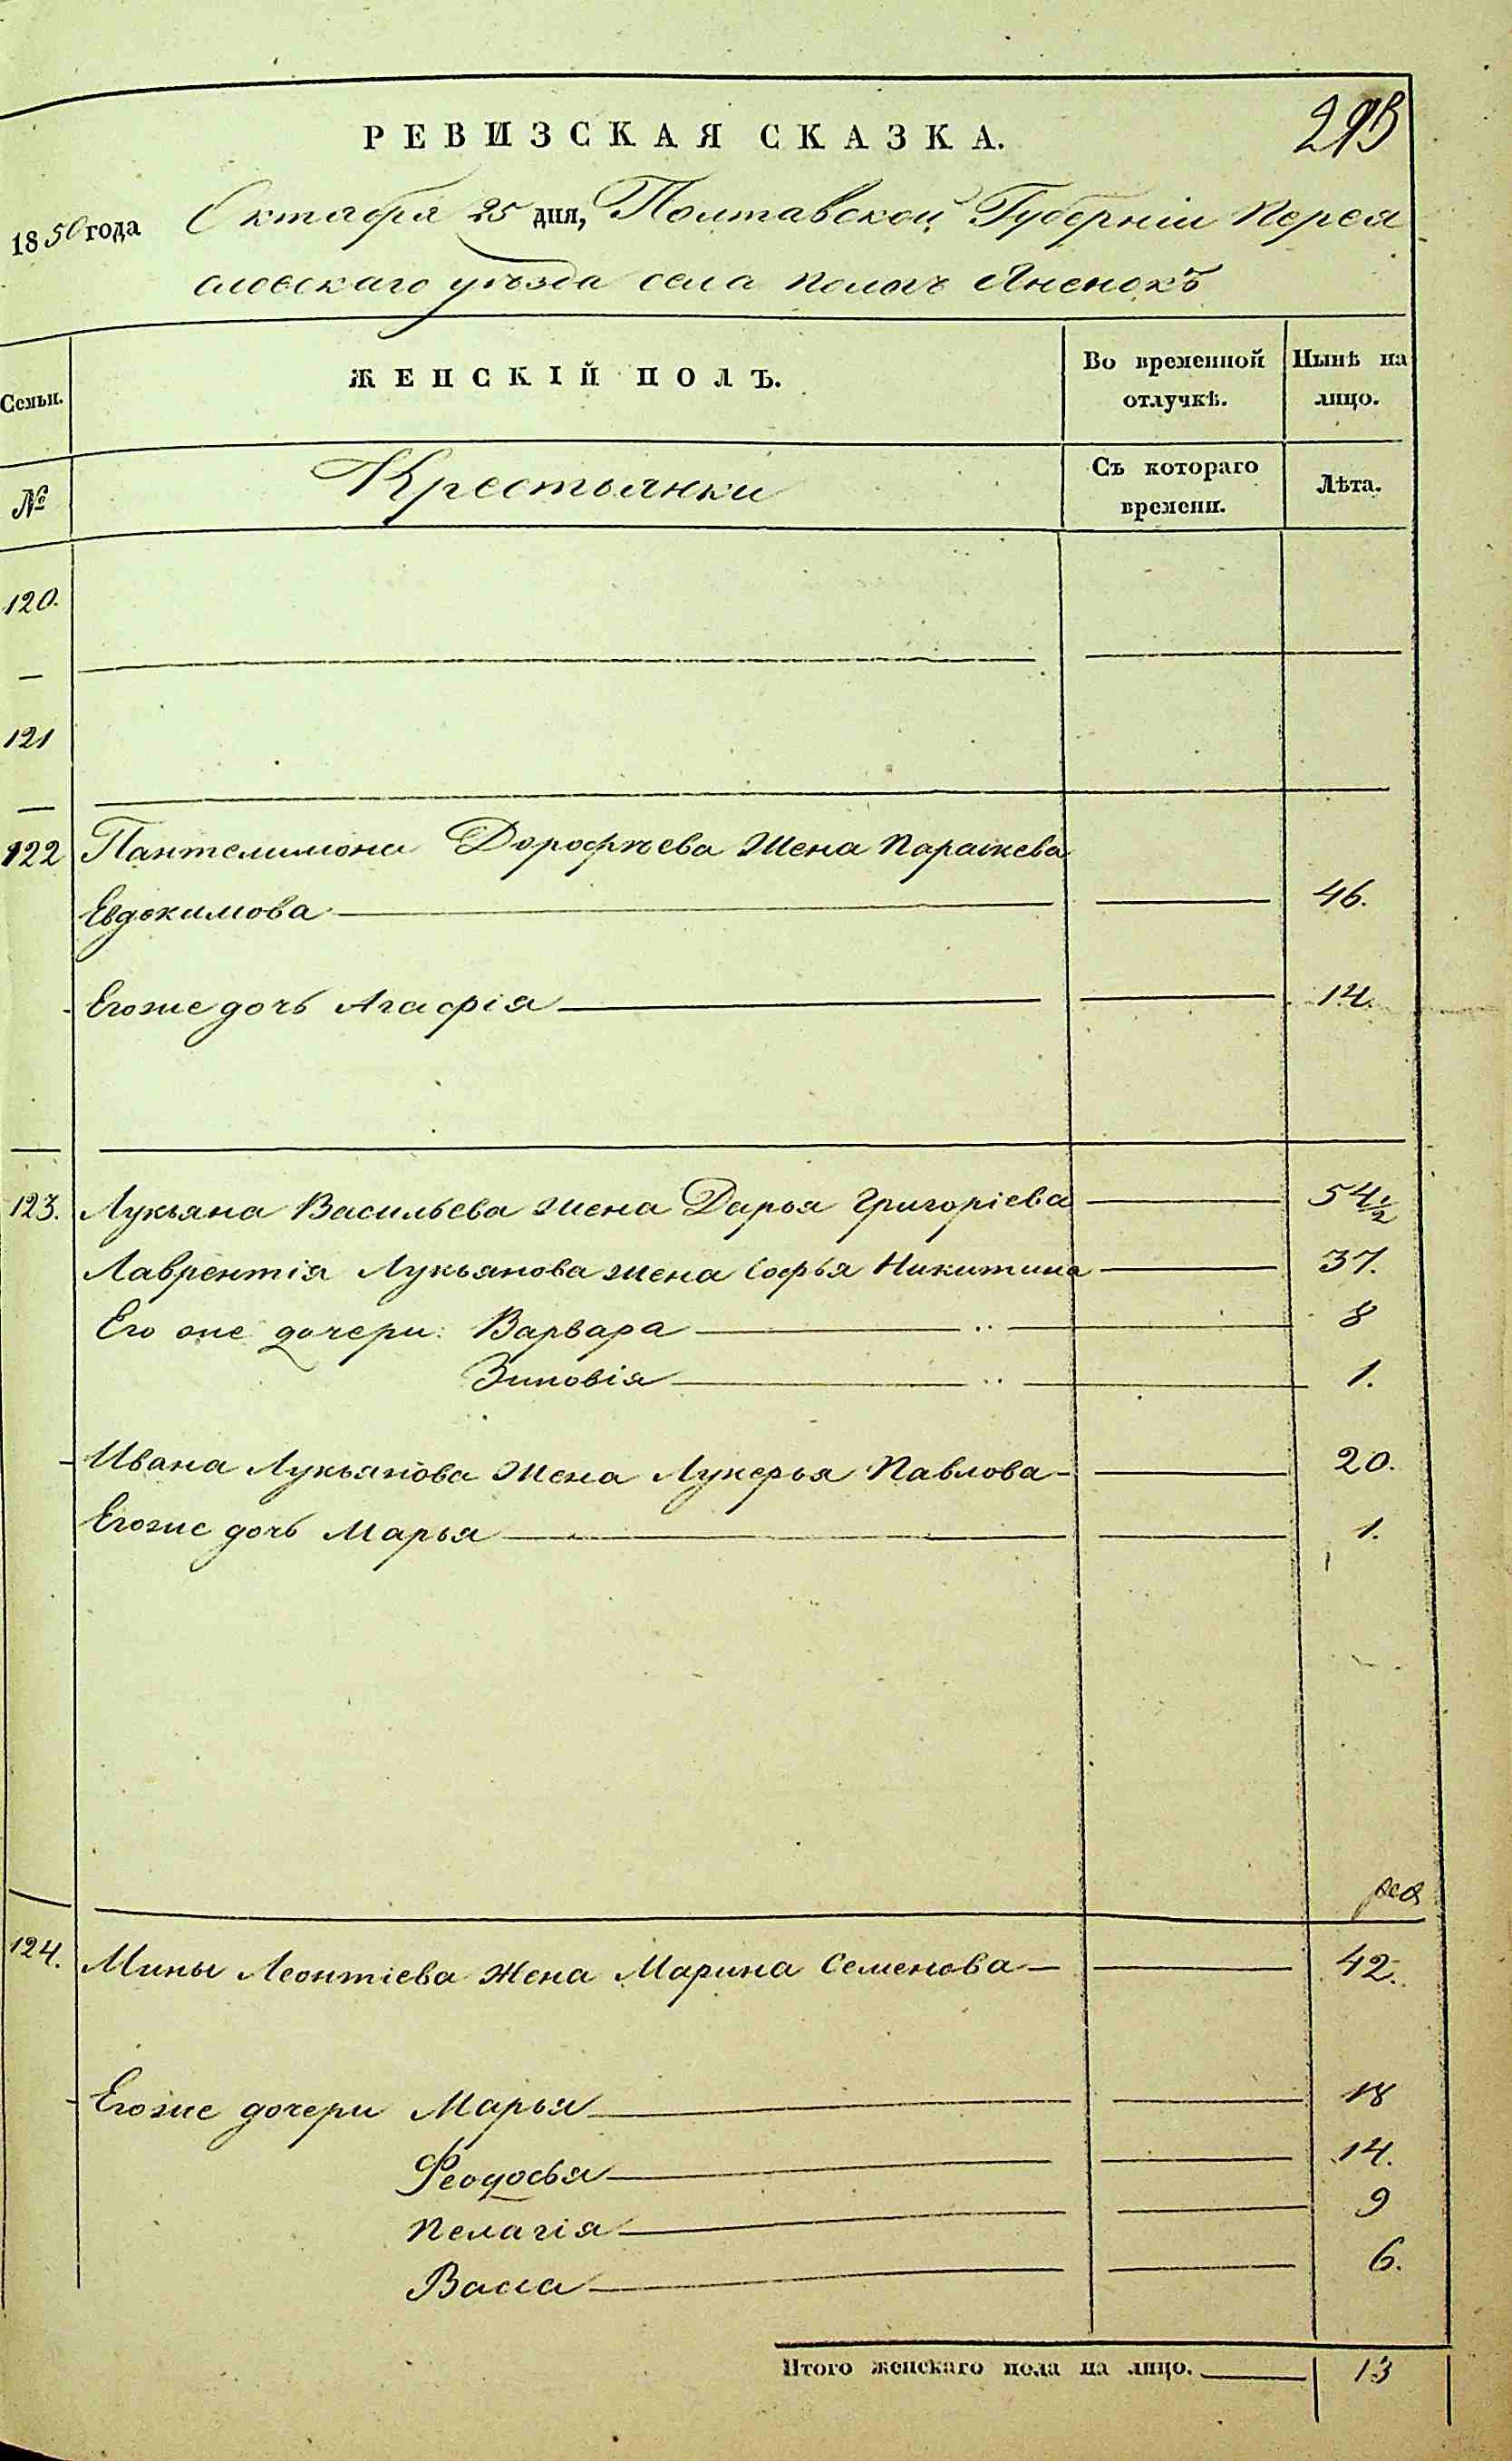 РЕВИЗСКАЯ СКАЗКА.
293
1850 года Октября 25 дня, Полтавской Губерніи Перея
славскаго уѣзда села Яненокъ
Семьи.
ЖЕНСКІЙ ПОЛЪ.
Во временной отлучкѣ.
Нынѣ на лицо.
№
Крестьянки
Съ котораго времени.
Лѣта.
120.
121
122 Пантелимона Дорофѣева жена Параскева
Евдокимова 46.
Егоже дочь Агафія 14.
123. Лукьяна Васильева жена Дарья Григоріева 54½
Лаврентія Лукьянова жена Софья Никитина 37.
Его же дочери: Варвара 8
Зиновія 1.
Ивана Лукьянова жена Лукерья Павлова 20.
Егоже дочь Марья 1.
124. Мины Леонтіева жена Марина Семенова 42.
Егоже дочери Марья 18
Феодосья 14.
Пелагія 9
Васса 6.
Итого женскаго пола на лицо. 13